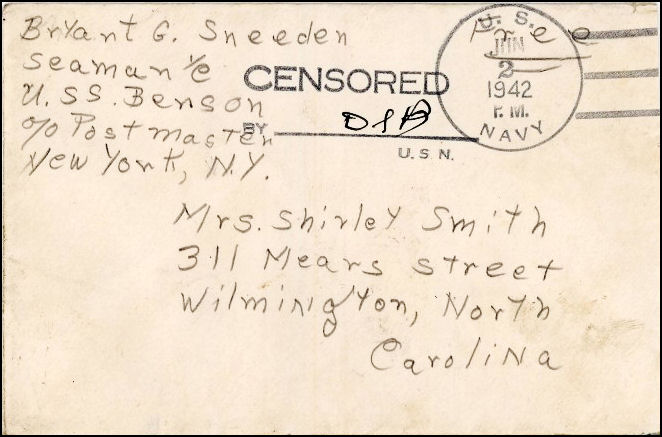 Bryant G. Sneeden
Seaman 1/c
U.S.S. Benson
c/o Postmaster
New York, N.Y.
Free
U. S.
JUN
2
1942
P. M.
NAVY
CENSORED
BY
U. S. N.
Mrs. Shirley Smith
311 Mears Street
Wilmington, North
Carolina